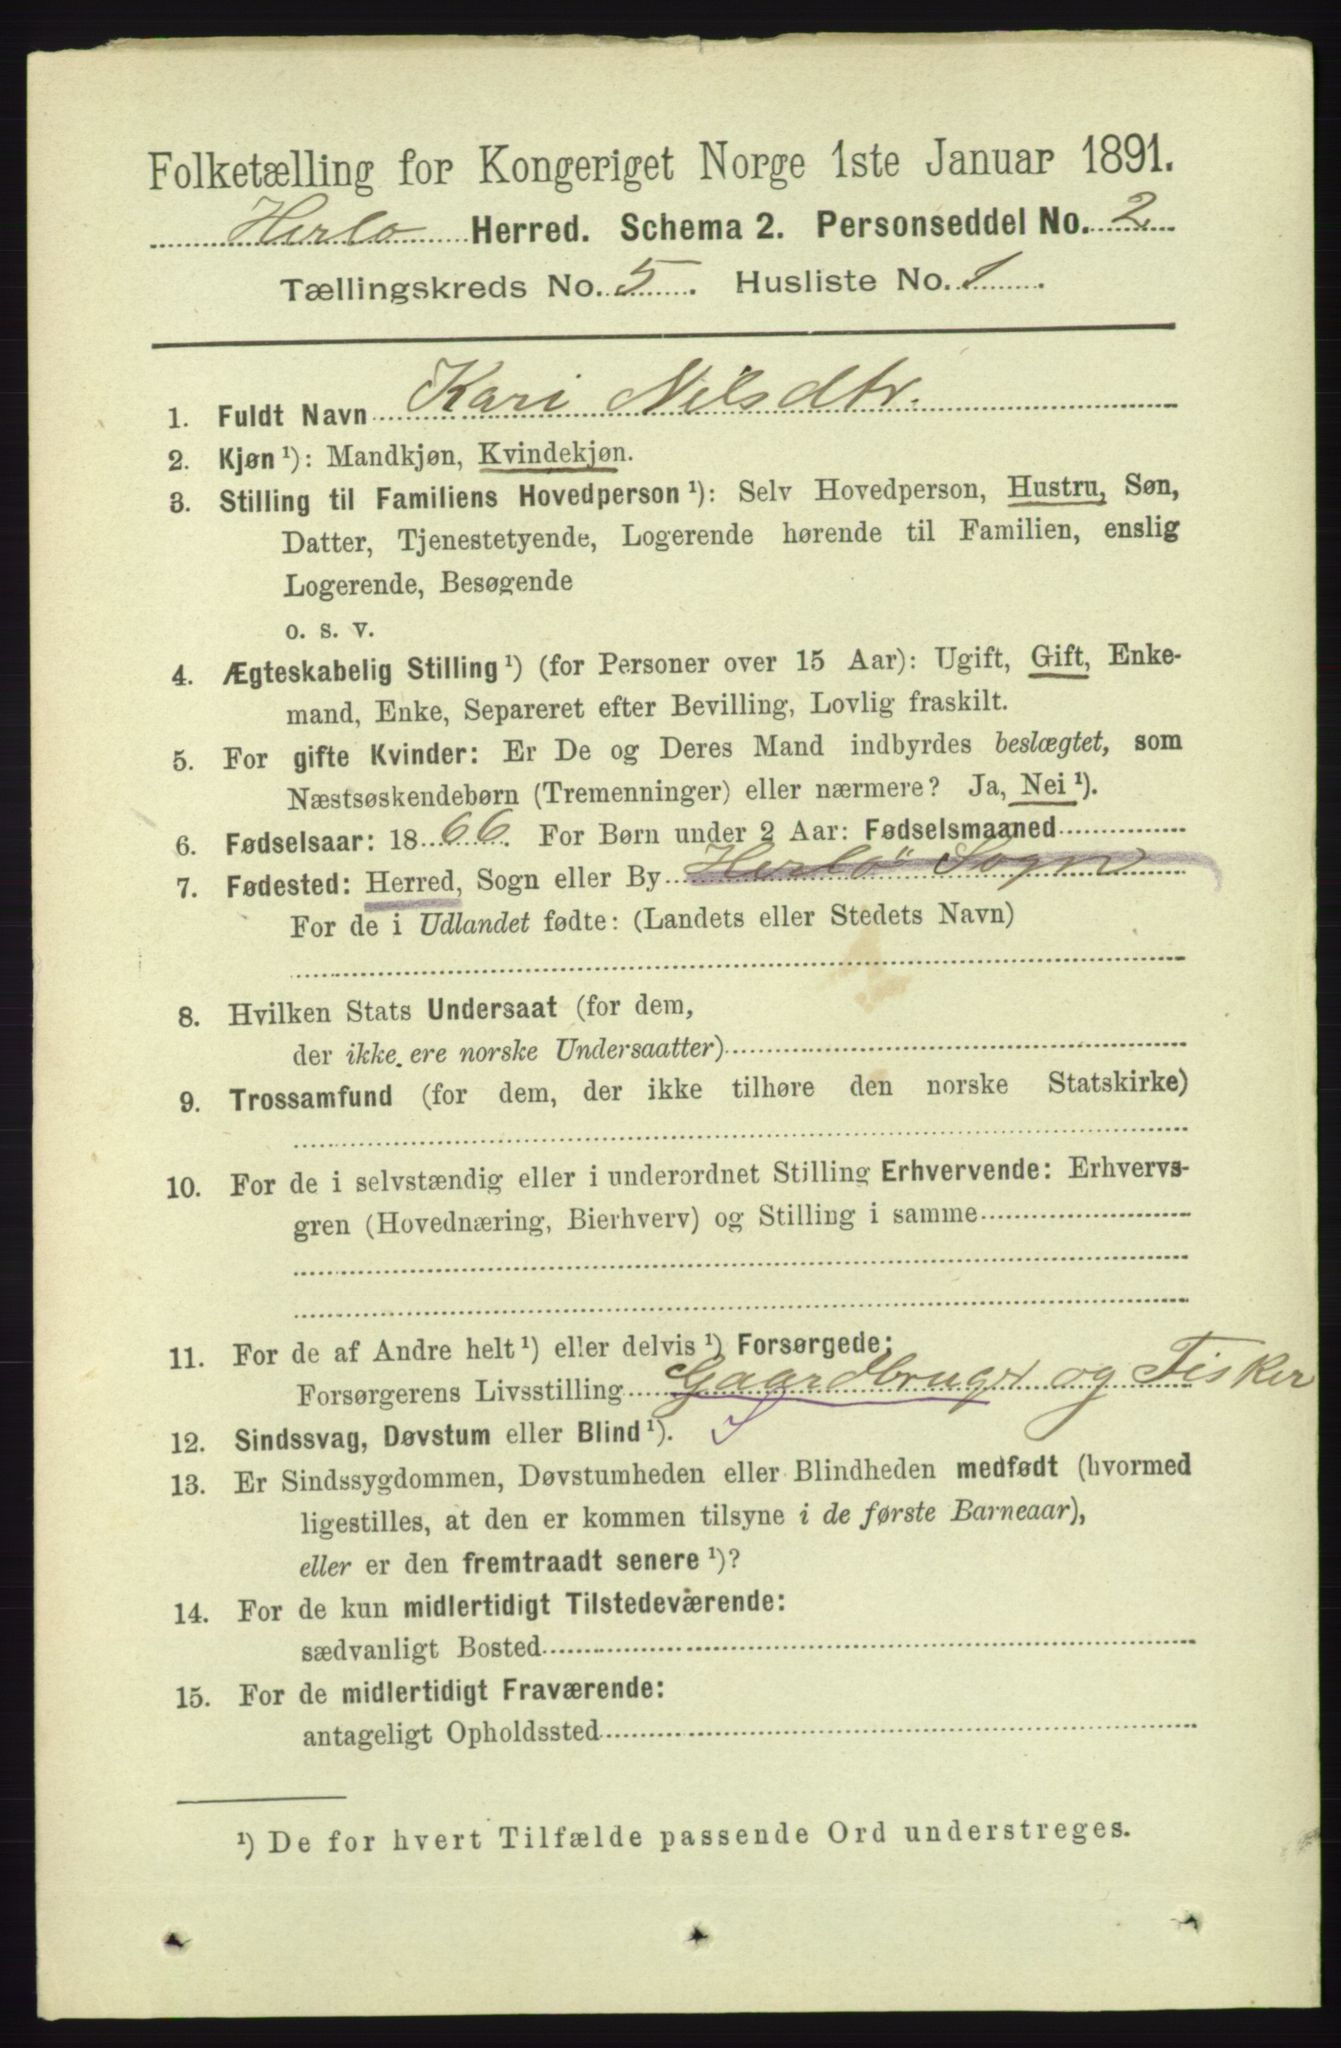 Folketælling for Kongeriget Norge 1ste Januar 1891.
Herlo Herred. Schema 2. Personseddel No. 2
Tællingskreds No. 5. Husliste No. 1.
1. Fuldt Navn Kari Nilsdtr.
2. Kjøn ¹): Mandkjøn, Kvindekjøn.
3. Stilling til Familiens Hovedperson ¹): Selv Hovedperson, Hustru, Søn,
Datter, Tjenestetyende, Logerende hørende til Familien, enslig
Logerende, Besøgende
o. s. v.
4. Ægteskabelig Stilling ¹) (for Personer over 15 Aar): Ugift, Gift, Enke-
mand, Enke, Separeret efter Bevilling, Lovlig fraskilt.
5. For gifte Kvinder: Er De og Deres Mand indbyrdes beslægtet, som
Næstsøskendebørn (Tremenninger) eller nærmere? Ja, Nei ¹).
6. Fødselsaar: 1866. For Børn under 2 Aar: Fødselsmaaned
7. Fødested: Herred, Sogn eller By Herlø Sogn
For de i Udlandet fødte: (Landets eller Stedets Navn)
8. Hvilken Stats Undersaat (for dem,
der ikke ere norske Undersaatter)
9. Trossamfund (for dem, der ikke tilhøre den norske Statskirke)
10. For de i selvstændig eller i underordnet Stilling Erhvervende: Erhvervs-
gren (Hovednæring, Bierhverv) og Stilling i samme
11. For de af Andre helt ¹) eller delvis ¹) Forsørgede:
Forsørgerens Livsstilling Gaardbruger og Fisker
12. Sindssvag, Døvstum eller Blind ¹).
13. Er Sindssygdommen, Døvstumheden eller Blindheden medfødt (hvormed
ligestilles, at den er kommen tilsyne i de første Barneaar),
eller er den fremtraadt senere ¹)?
14. For de kun midlertidigt Tilstedeværende:
sædvanligt Bosted
15. For de midlertidigt Fraværende:
antageligt Opholdssted
¹) De for hvert Tilfælde passende Ord understreges.